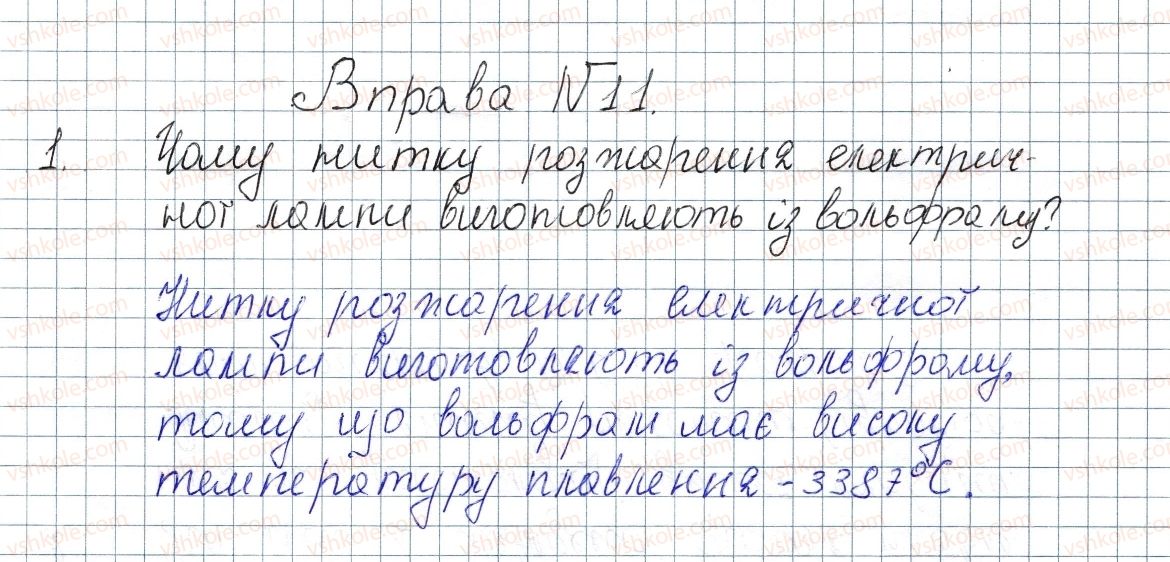 Вправа №11.
1. Чому нитку розжарення електрич-
ної лампи виготовляють із вольфраму?
Нитку розжарення електричної
лампи виготовляють із вольфрому,
тому що вольфрам має високу
температуру плавлення - 3387°C.